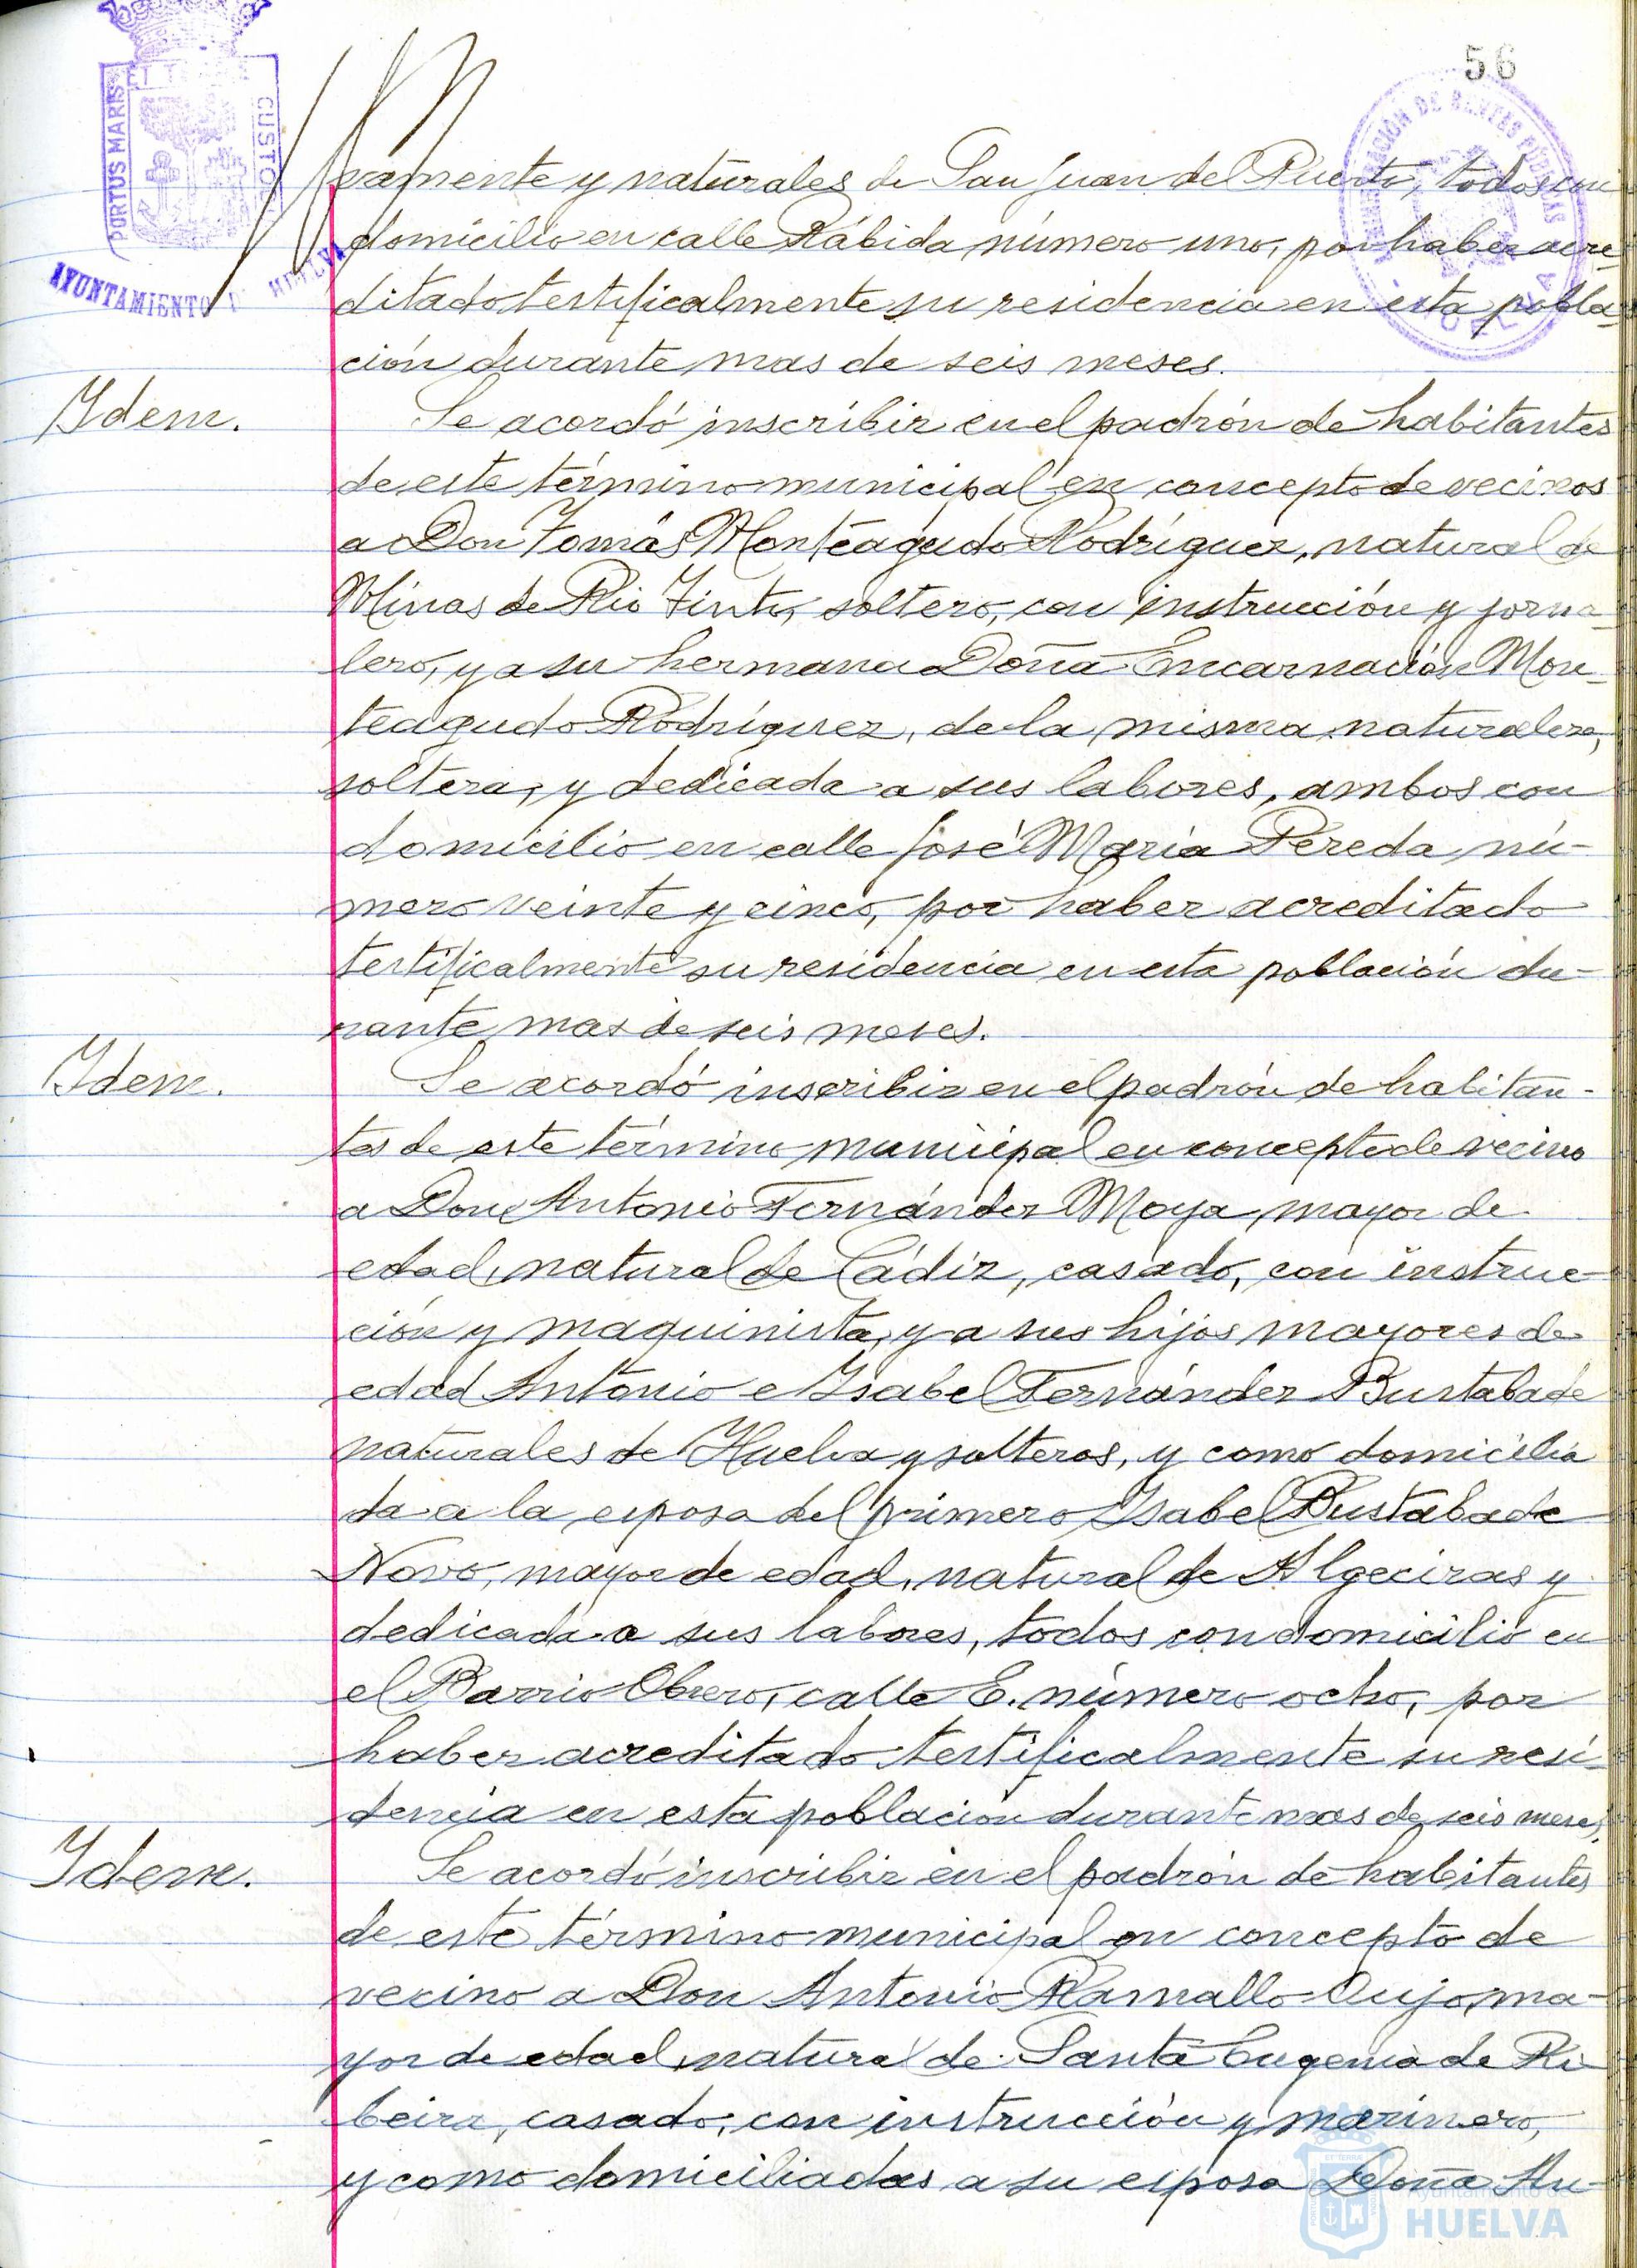 56
PORTUS MARIS ET TERRAE CUSTODIA
AYUNTAMIENTO DE HUELVA
vamente y naturales de San Juan del Puerto, todos con
domicilio en calle Rábida número uno, por haber acre-
ditado testificalmente su residencia en esta pobla-
ción durante mas de seis meses.
Idem.
Se acordó inscribir en el padrón de habitantes
de este término municipal en concepto de vecinos
a Don Tomás Monteagudo Rodríguez, natural de
Minas de Rio Tinto, soltero, con instrucción y jorna-
lero, y a su hermana Doña Encarnación Mon-
teagudo Rodríguez, de la misma naturaleza,
soltera, y dedicada a sus labores, ambos con
domicilio en calle José María Pereda nú-
mero veinte y cinco, por haber acreditado
testificalmente su residencia en esta población du-
rante mas de seis meses.
Idem.
Se acordó inscribir en el padrón de habitan-
tes de este término municipal en concepto de vecino
a Don Antonio Fernández Moya, mayor de
edad, natural de Cádiz, casado, con instruc-
ción y maquinista, y a sus hijos mayores de
edad Antonio e Isabel Fernández Bustabade
naturales de Huelva y solteros, y como domicilia
da a la esposa del primero Isabel Bustabade
Novo, mayor de edad, natural de Algeciras y
dedicada a sus labores, todos con domicilio en
el Barrio Obrero, calle E. número ocho, por
haber acreditado testificalmente su resi-
dencia en esta población durante mas de seis meses.
Idem.
Se acordó inscribir en el padrón de habitantes
de este término municipal en concepto de
vecino a Don Antonio Ramallo Oujo, ma-
yor de edad, natural de Santa Eugenia de Ri-
beira, casado, con instrucción y marinero,
y como domiciliadas a su esposa Doña An-
Ayuntamiento de
HUELVA